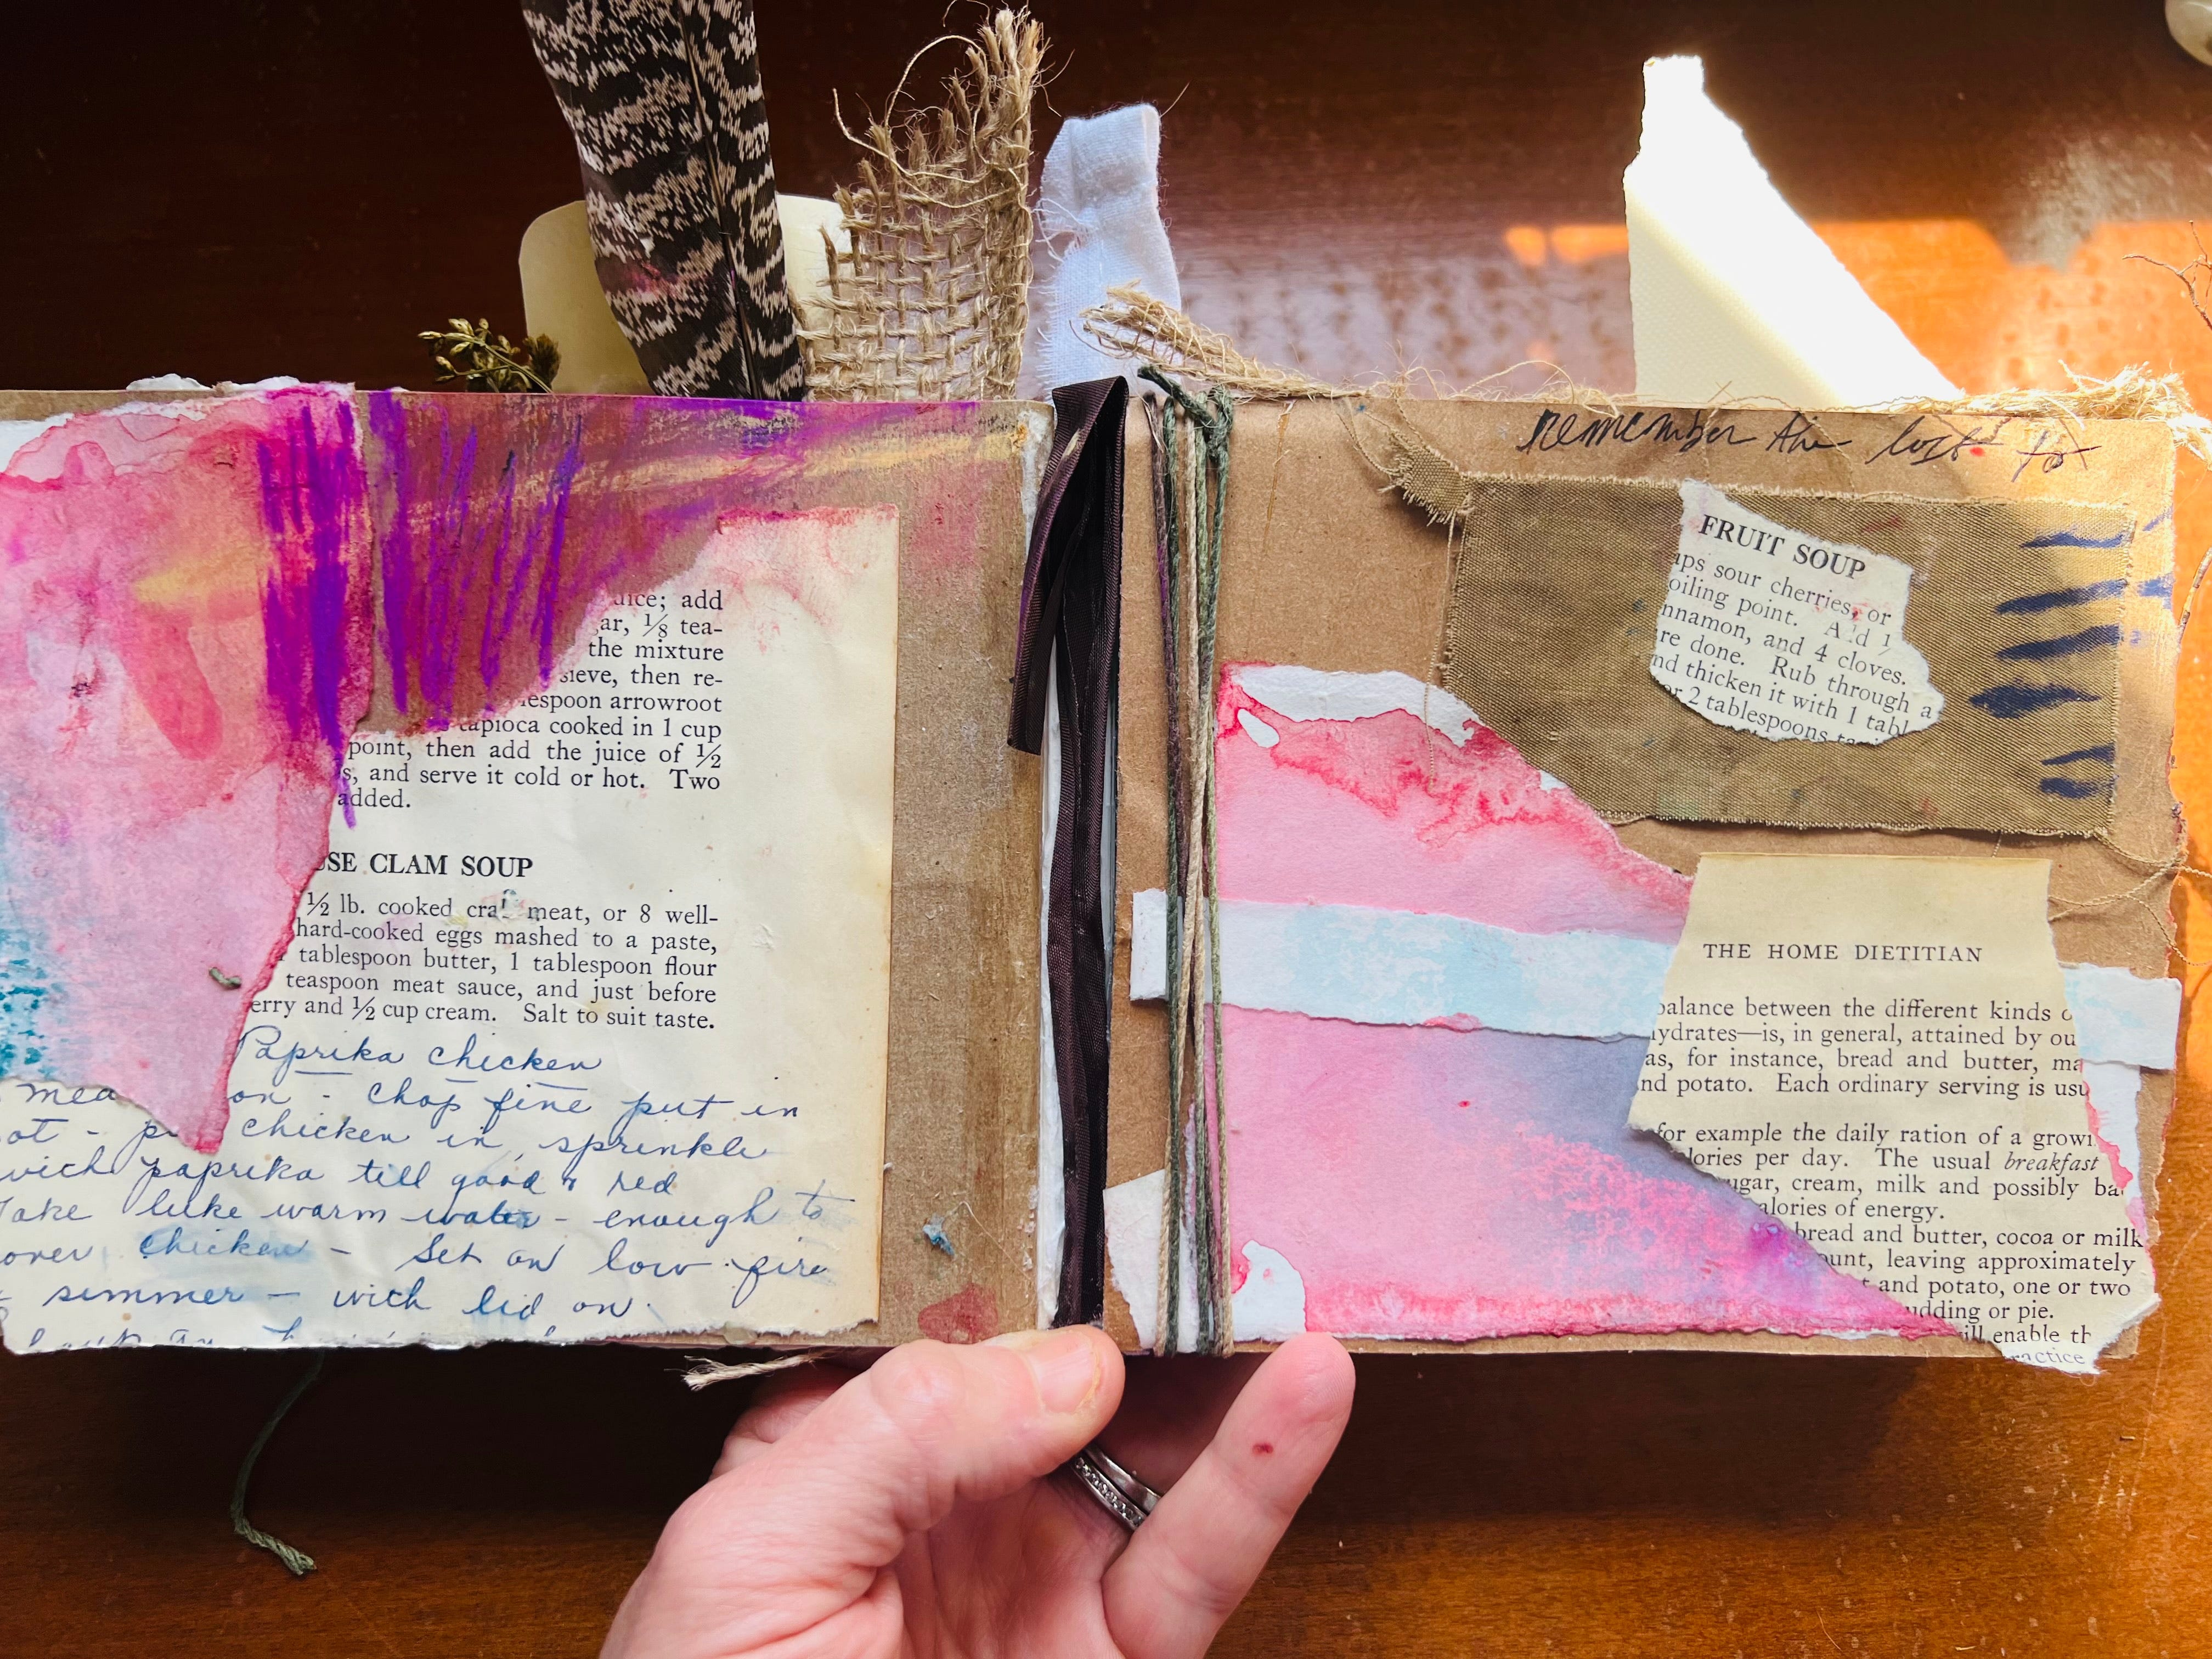 juice; add
ar, ⅛ tea-
the mixture
sieve, then re-
lespoon arrowroot
tapioca cooked in 1 cup
point, then add the juice of ½
s, and serve it cold or hot. Two
added.
SE CLAM SOUP
½ lb. cooked meat, or 8 well-
hard-cooked eggs mashed to a paste,
tablespoon butter, 1 tablespoon flour
teaspoon meat sauce, and just before
erry and ½ cup cream. Salt to suit taste.
Paprika chicken
on - chop fine put in
chicken in, sprinkle
paprika till good & red
Take luke warm water - enough to
over chicken - Set on low fire
simmer - with lid on.
remember the
FRUIT SOUP
ups sour cherries, or
oiling point. Add 1
nnamon, and 4 cloves.
re done. Rub through a
nd thicken it with 1 tabl
or 2 tablespoons
THE HOME DIETITIAN
balance between the different kinds o
ydrates—is, in general, attained by ou
as, for instance, bread and butter, ma
nd potato. Each ordinary serving is usu
for example the daily ration of a growi
lories per day. The usual breakfast
ugar, cream, milk and possibly ba
alories of energy.
bread and butter, cocoa or milk
unt, leaving approximately
t and potato, one or two
udding or pie.
ill enable th
ractice